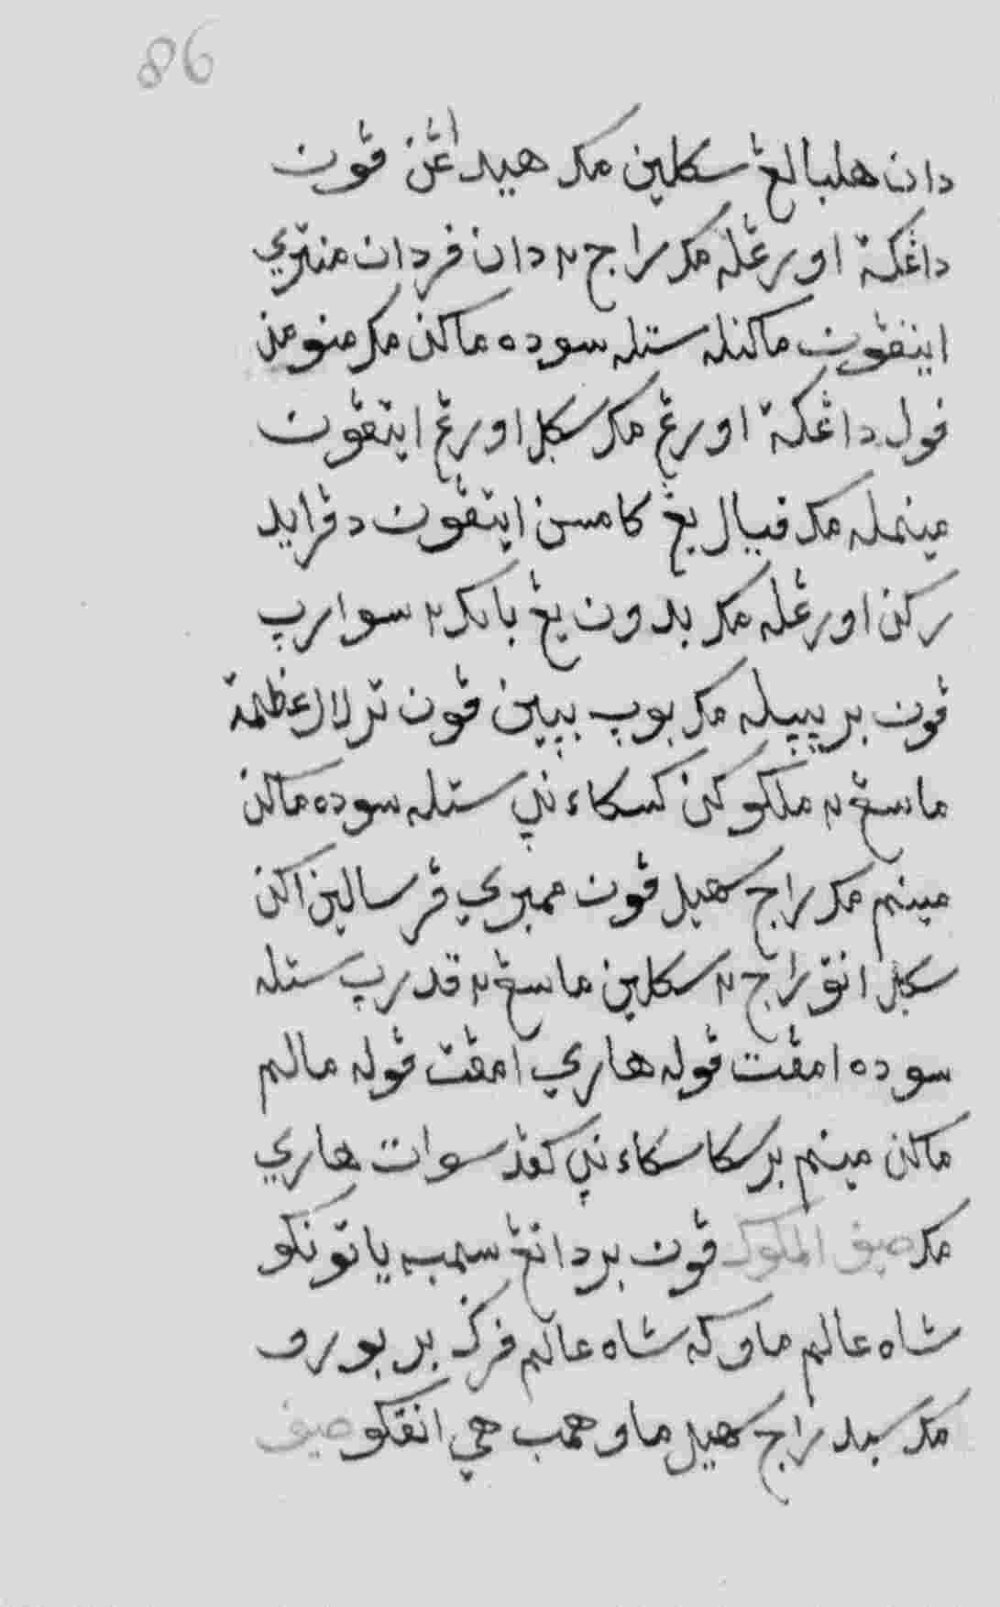 86
دان هلبالغ سکلين مک هيد اغن ڤون
داڠکة اورڠله مک راج ٢ دان فردان منتري
اينڤون ماکنله ستله سوده ماکن مک منومن
فول داڠکة اورڠ مک سکل اورڠ ايتڤون
مينمله مک فيال يڠ کامسن ايتڤون دڤرايد
رکن اورڠله مک بدون يڠ باءک ٢ سوارپ
ڤون بريپيله مک بوپ بپين ڤون ترلالعظمة
ماسڠ ٢ ملکوکن کسکاءنڽ ستله سوده ماکن
مينم مک راج سهيل ڤون ممبري ڤرسالين اکن
سکل انق راج ٢ سکلين ماسڠ ٢ قدرپ ستله
سوده امڤت ڤوله هاري امڤت ڤوله مالم
ماکن مينم برسکا سکاءنڽ سوات هاري
مک صيف الملکوک ڤون بردانڠ سمبه ياتونکو
شاه عالم ماوکه شاه عالم فرک بربورو
مک سبد راج سهيل ماو همب هي انقکو صيف